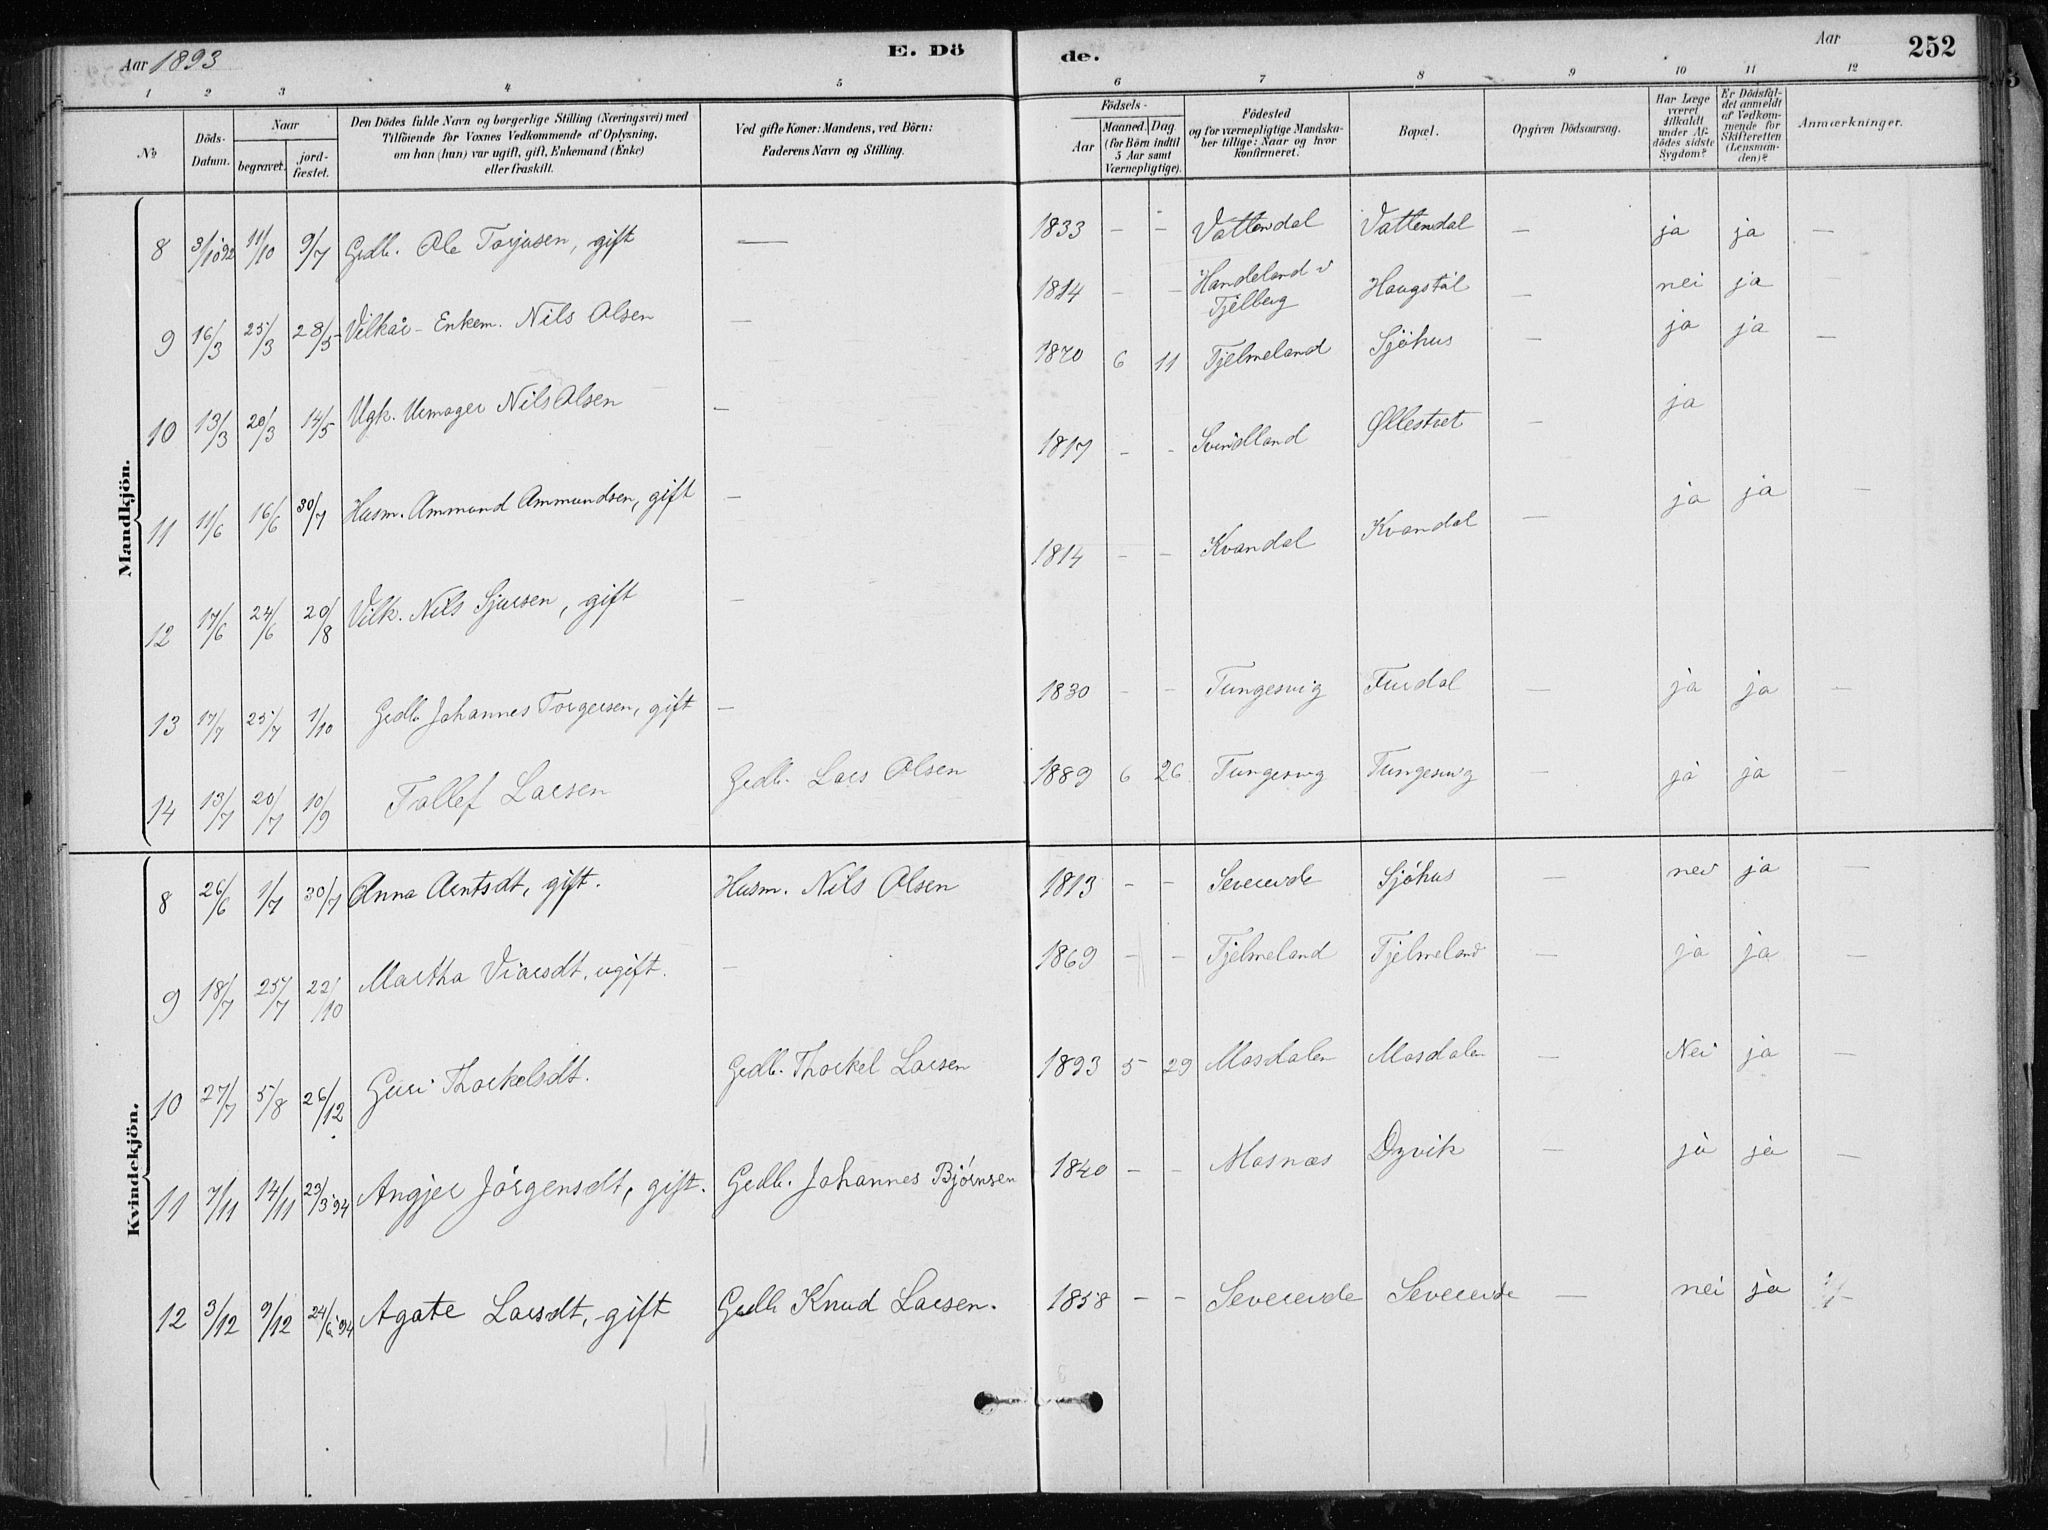 Aar 1893
E. Dö
de.
Aar
252
1 2 3 4 5 6 7 8 9 10 11 12
No
Döds-Datum.
Naar
begravet.
jordfæstet.
Den Dödes fulde Navn og borgerlige Stilling (Næringsvei) med
Tilföiende for Voxnes Vedkommende af Oplysning,
om han (hun) var ugift, gift, Enkemand (Enke)
eller fraskilt.
Ved gifte Koner: Mandens, ved Börn:
Faderens Navn og Stilling.
Födsels-
Aar
Maaned. Dag
(for Börn indtil 5 Aar samt Værnepligtige).
Födested
og for værnepligtige Mandskaber tillige: Naar og hvor konfirmeret.
Bopæl.
Opgiven Dödsaarsag.
Har Læge været tilkaldt under Afdödes sidste Sygdom?
Er Dödsfaldet anmeldt af Vedkommende for Skifteretten (Lensmanden)?
Anmærkninger.
Mandkjön.
8 3/10 92 11/10 9/7 Gedb. Ole Torjusen, gift — 1833 - - Vattendal Vattendal — ja ja —
9 16/3 25/3 28/5 Vilkår-Enkem. Nils Olsen — 1814 - - Handeland v Tjelberg Haugstøl — nei ja —
10 13/3 20/3 14/5 Ugk. Urmager Nils Olsen — 1870 6 11 Tjelmeland Sjøhus — ja ja —
11 11/6 16/6 30/7 Husm. Ammund Ammundsen, gift — 1817 - - Svindland Øllestvet — ja
12 17/6 24/6 20/8 Vilk. Nils Sjursen, gift — 1814 - - Kvandal Kvandal — ja ja —
13 17/7 25/7 1/10 Gedb. Johannes Torgersen, gift — 1830 - - Tungesvig Furdal — ja ja —
14 13/7 20/7 10/9 Tollef Larsen Gedb. Lars Olsen 1889 6 26 Tungesvig Tungesvig — ja ja —
Kvindekjön.
8 26/6 1/7 30/7 Anna Arntsdt, gift. Husm. Nils Olsen 1813 - -Ševereide Sjøhus — nei ja —
9 18/7 25/7 22/10 Martha Viarsdt, ugift. — 1869 - - Tjelmeland Tjelmeland — ja ja —
10 27/7 5/8 26/12 Guri Thorkelsdt. Gedb. Thorkel Larsen 1893 5 29 Mosdalen Mosdalen — Nei ja —
11 7/11 14/11 23/3 '94 Angjer Jørgensdt, gift. Gedb. Johannes Bjørnsen 1840 - - Mosnæs Dyvik — ja ja —
12 3/12 9/12 24/6 '94 Agate Larsdt, gift Gedb Knud Larsen. 1858 - - Severeide Severeide — nei ja